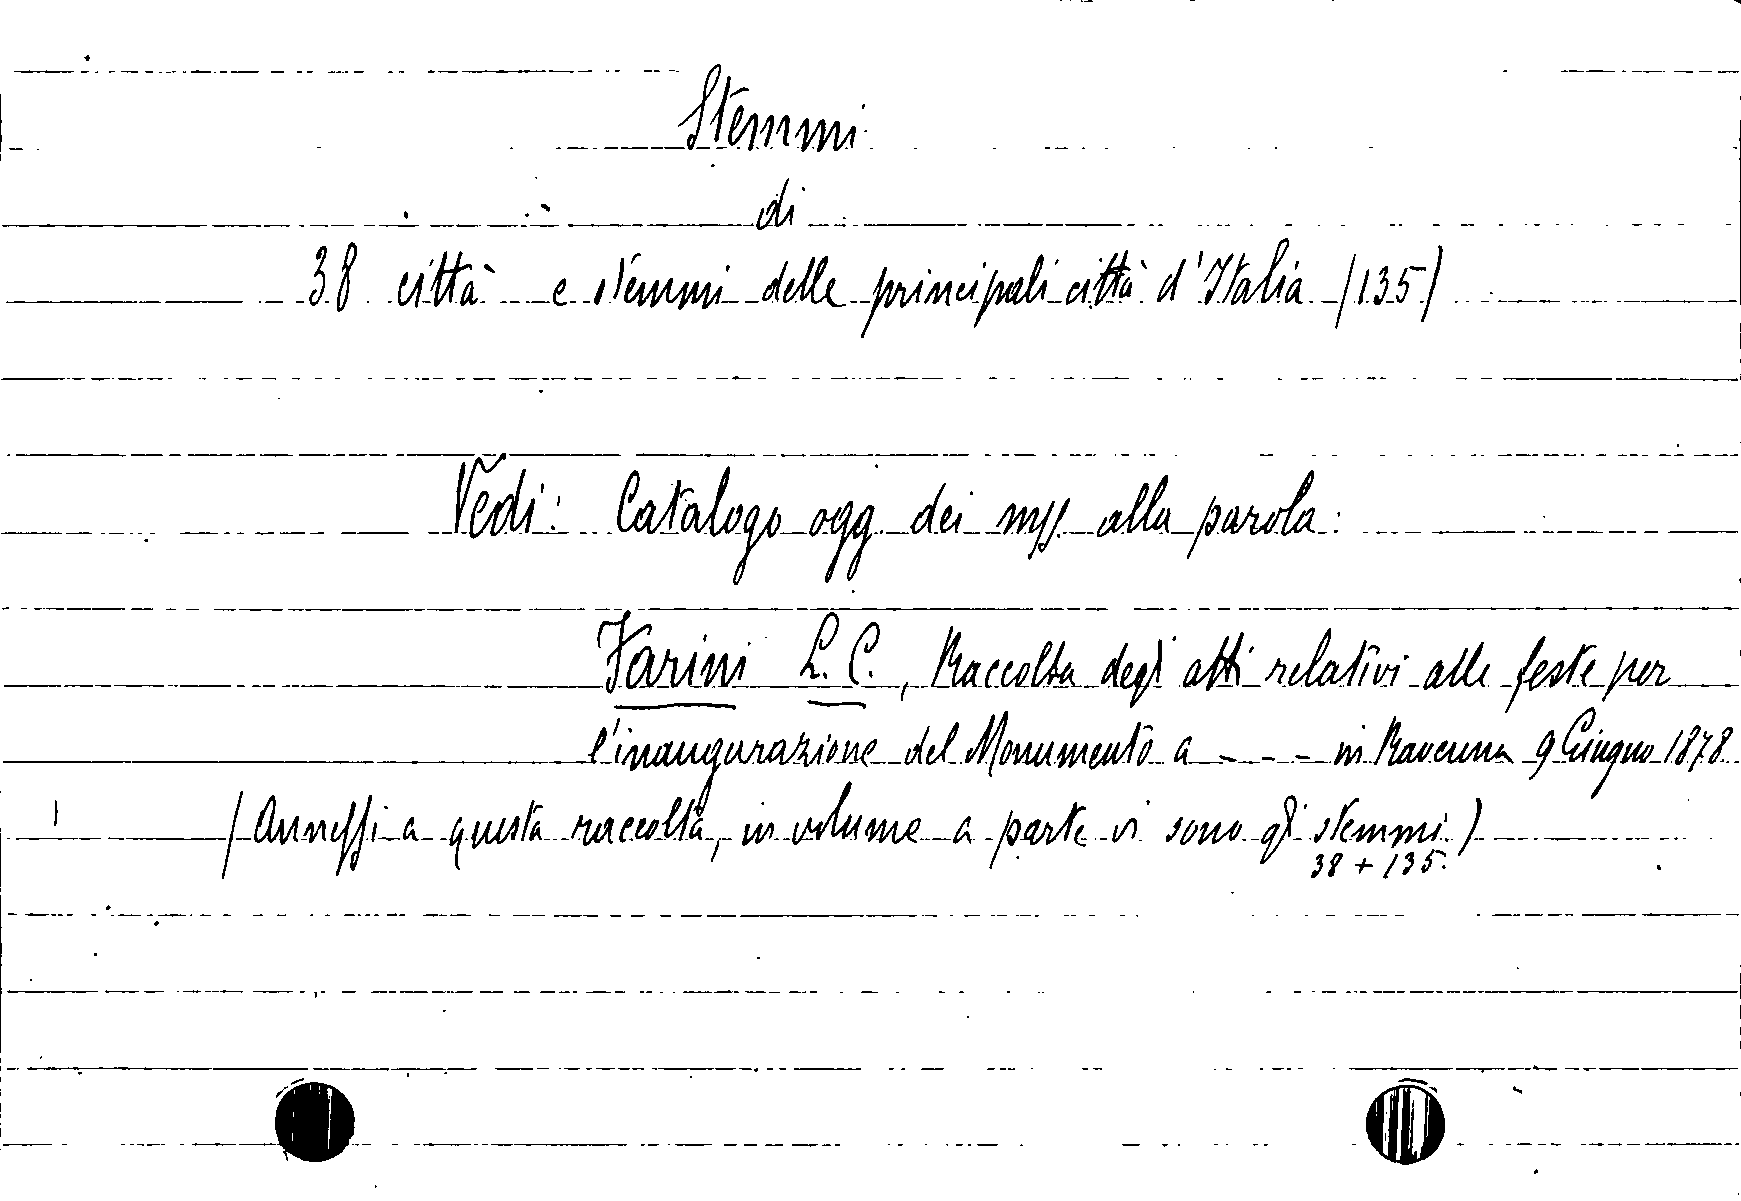 Stemmi
di
38 città e stemmi delle principali città d'Italia (135)
Vedi: Catalogo ogg. dei mss. alla parola:
Farini L. C., Raccolta degli atti relativi alle feste per
l'inaugurazione del Monumento a - - - in Ravenna 9 Giugno 1878
(Annessi a questa raccolta, in volume a parte vi sono gli stemmi)
38 + 135.